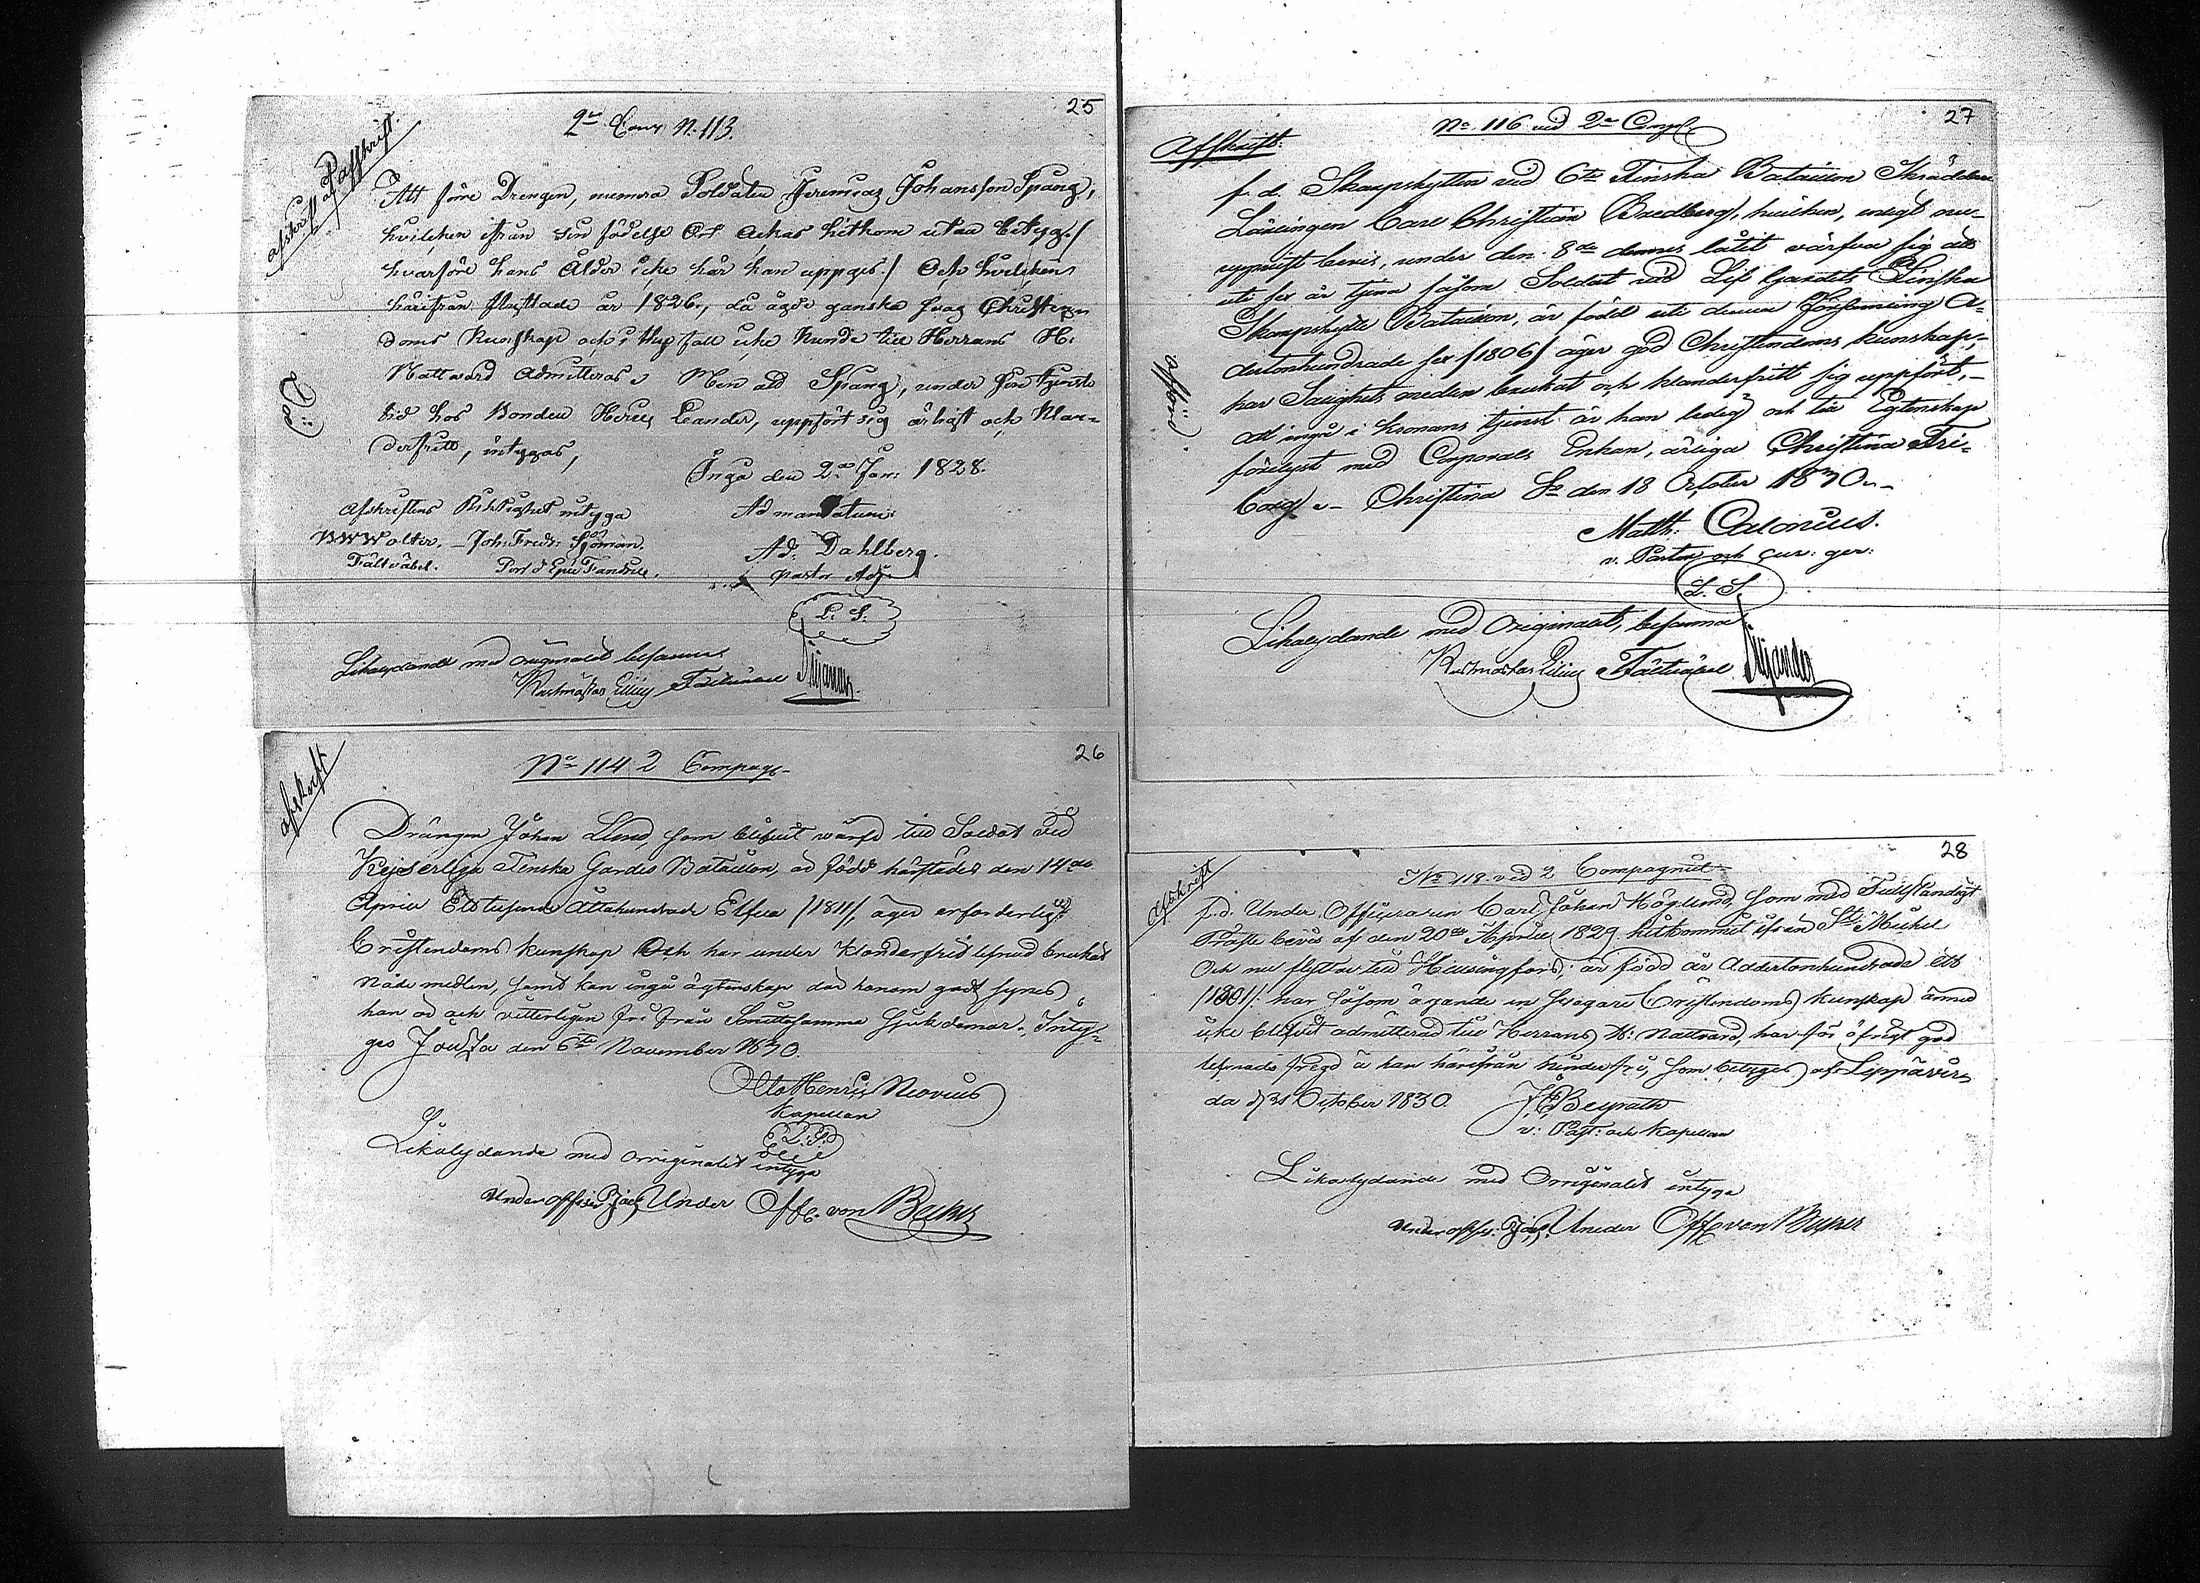 25
2:dra Comp N. 113.
afskrift af afskrift.
Att förre Drengen, numera Soldaten Jeremias Johansson Spang,
hvilcken ifrån sin födelse Ort Ackas hitkom utan betyg /
hvarföre hans Ålder icke här kan uppges / Och hvilcken
härifrån flyttade år 1826, då ägde ganska svag Christen-
doms Kunskap och i thy fall icke kunde till Herrans H.
Nattvard Admitteras. Men att Spang, under sin tjenste
tid hos Bonden Leander, uppfört sig ärligt och klan-
derfritt, intygas,
Ingå den 2:dra Jan: 1828.
Afskriftens Riktighet intyga
Ad mandatum
W Wolter. Joh: Fredr: Sjöman.
Fältväbel.
Ad: Dahlberg.
pastor Adj.
L. S.
Likalydande med originalet befunnet
Rustmästar Fältväbel
26
No 114 2 Compag-
afskrift
Drängen Johan Lund, som blifvit värfd till Soldat vid
Kejserliga Finska Gardes Bataillon, är född härstädes den 14de
April Ettusende Åttahundrade Elfva /1811/, äger erforderligt
Cristendoms kunskap Och har under klanderfrid lefnad brukat
nådemedlen, samt kan ingå ägtenskap då honom godt synes
han är och vitterligen fri från Smittosamma sjukdomar. Inty-
gas den 6te November 1830.
Otto Henric Neovius
Kapellan
L. S.
Likalydande med orriginalet intyga
Underofficer Under Offc. von
27
No 116 vid 2dra Comp.
Afskrift.
f. d. Skarpskytten vid 6te Finska Bataillon Skräddare
Lärlingen Carl Christian Bredberg, hvilken, enligt nu
uppvist bevis, under den 8de dennes låtit värfva sig att
uti sex år tjena såsom Soldat vid Lif Gardets Finska
Skarpskytte Bataillon, är född uti denna Församling A-
dertonhundrade sex /1806/ äger god Christendoms kunskap,
har Salighets medlen brukat och klanderfritt sig uppfört, -
att ingå i kronans tjenst är han ledig och till Egtenskap
förelyst med Corporals Enkan, ärliga Christina Fri-
borg. - Christina Sn den 18 October 1830. -
Matth: Calonius.
v. Pastor och Cur: ger:
L. S.
Likalydande med Originalet, befunna
Rustmästar Fältväbel
28
No 118 vid 2 Compagniet
Afskrift
f. d. Under Officeraren Carl Johan Höglund, som med Fullständigt
Präste bevis af den 20de Aprill 1829 hitkommit ifrån St: Michel
Och nu flyttar till Hellsingfors, är född år Adertonhundrade ett
/1801/: har såsom ägande en svagare Cristendoms kunskap ännu
icke blifvit admitterad till Herrans H: nattvard, har för öfrigt god
lefnads fregd kan härifrån hinderfri, som betyges af Leppävir-
da d. 31 October 1830.
v: Past: och Kapellan
Likalydande med Orriginalet intyga
Under offic. Under Offc von